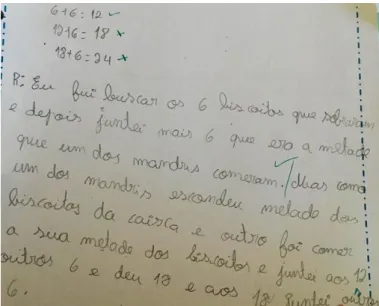 6+6=12 ✓
12+6=18 x
18+6=24 x
R: Eu fui buscar os 6 biscoitos que sobraram
e depois juntei mais 6 que era a metade
que um dos mandris comeram. Mas como
um dos mandris escondeu metade dos
biscoitos da caixa e outro foi comer
a sua metade dos biscoitos e juntei aos 12
outros 6 e deu 18 e aos 18 juntei outros
6.